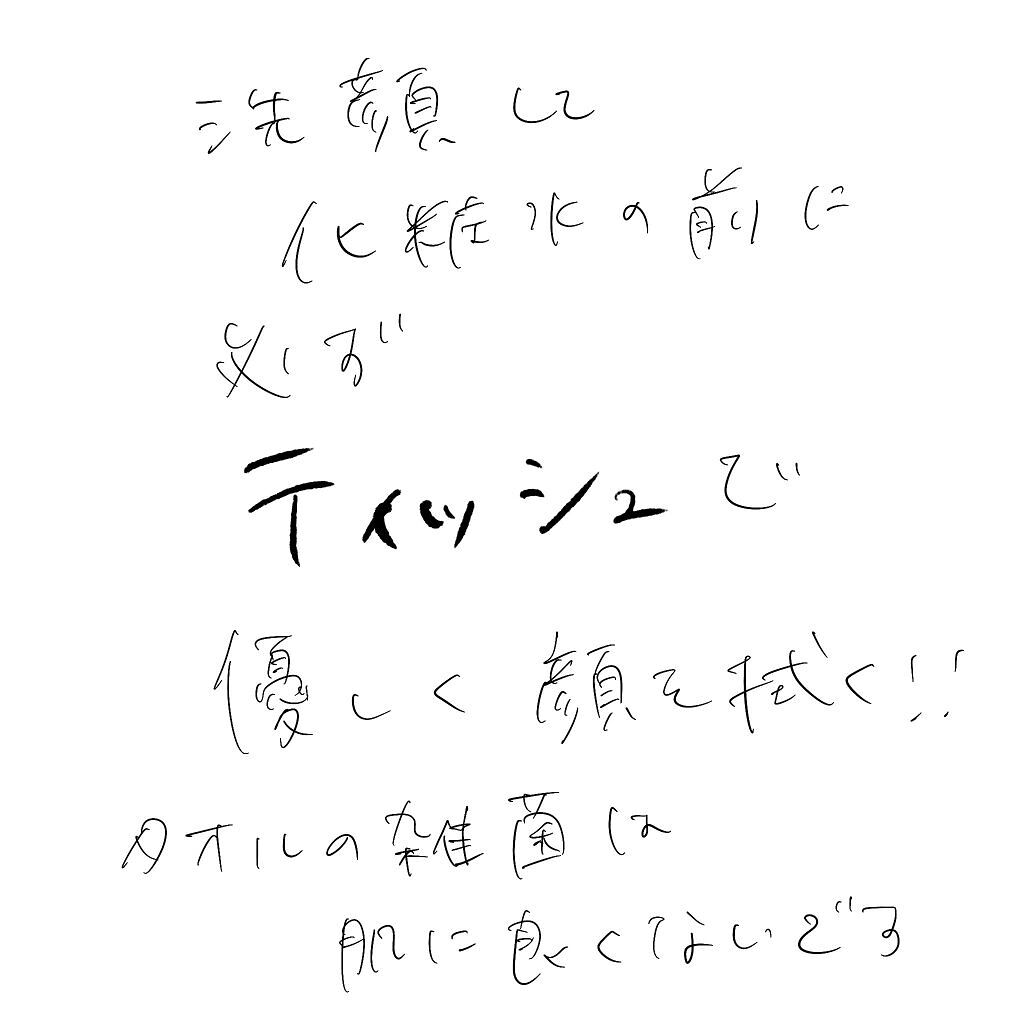 洗顔して
化粧水の前に
必ず
ティッシュで
優しく顔を拭く!!
タオルの雑菌は
肌に良くないです